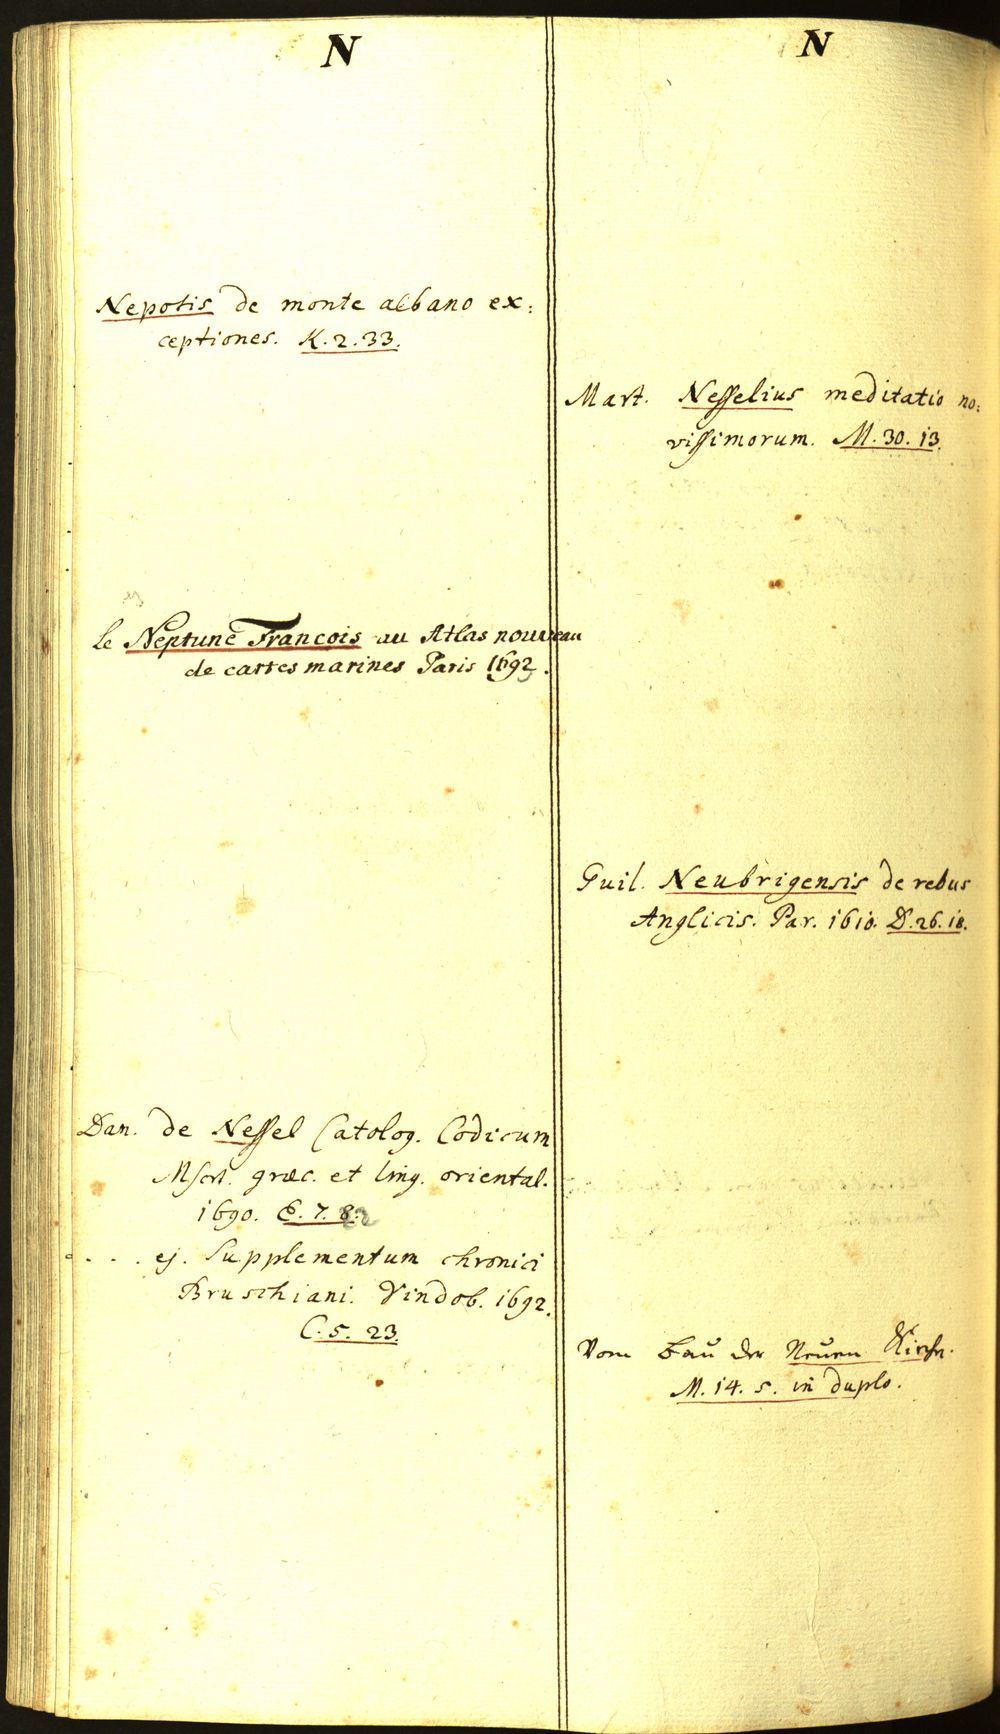 N
Nepotis de monte albano ex:
ceptiones. K. 2. 33.
le Neptune Francois au Atlas nouveau
de cartes marines Paris 1692.
Dan. de Nessel Catolog. Codicum
Mscrt. græc. et ling. oriental.
1690. E. 7. 8.
. . . . ej. Supplementum chronici
Bruschiani. Vindob. 1692.
C. 5. 23.
N
Mart. Nesselius meditatio no:
vissimorum. M. 30. 13.
Guil. Neubrigensis de rebus
Anglicis. Par. 1610. D. 26. 18.
Vom Bau der Neuen Kirchen.
M. 14. 5. in duplo.